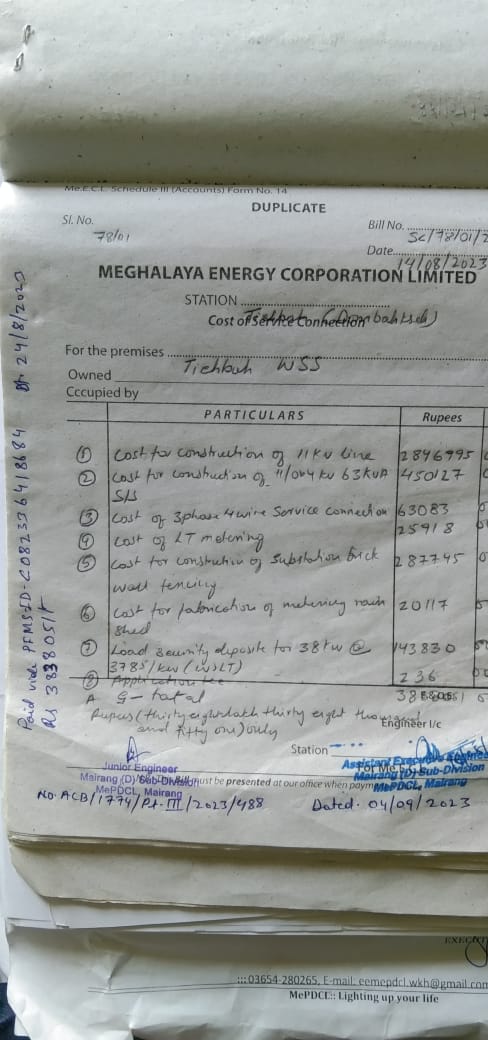 Me.E.C.L. Schedule III (Accounts) Form No. 14
DUPLICATE
Sl. No. 78/01
Bill No. SC/78/01/2
Date 14/08/2023
MEGHALAYA ENERGY CORPORATION LIMITED
STATION
Cost of Service Connection
For the premises
Owned Tiehbah WSS
Occupied by
PARTICULARS Rupees
① Cost for construction of 11KV line 2896995
② Cost for construction of 11/0.4 KV 63KVA 450127
S/S
③ Cost of 3phase 4wire Service connection 63083
④ Cost of LT metering 25918
⑤ Cost for construction of Substation brick 287745
wall fencing
⑥ Cost for fabrication of metering room 20117
Shed
⑦ Load Security deposite for 38kw @ 143830
3785/kw (WSLT)
⑧ Application fee 236
A G-total
Rupees (thirty eight lakh thirty eight thousand
and fifty one) only
Engineer I/c
Station
Junior Engineer
Mairang (D) Sub-Division
MePDCL, Mairang
Assistant Executive Engineer
Mairang (D) Sub-Division
MePDCL, Mairang
must be presented at our office when paym
No. ACB/1774/Pt-III/2023/488 Dated. 04/09/2023
Paid vide PFMS-ID-C082336418684 Dt. 24/8/2023
Rs 3838051/-
EXECUT
:::03654-280265, E-mail: eemepdcl.wkh@gmail.com
MePDCL:: Lighting up your life